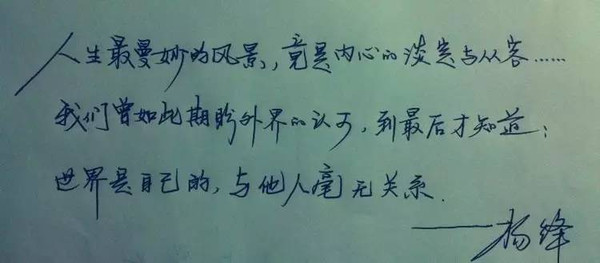 人生最曼妙的风景，竟是内心的淡定与从容……
我们曾如此期盼外界的认可，到最后才知道：
世界是自己的，与他人毫无关系．
——杨绛